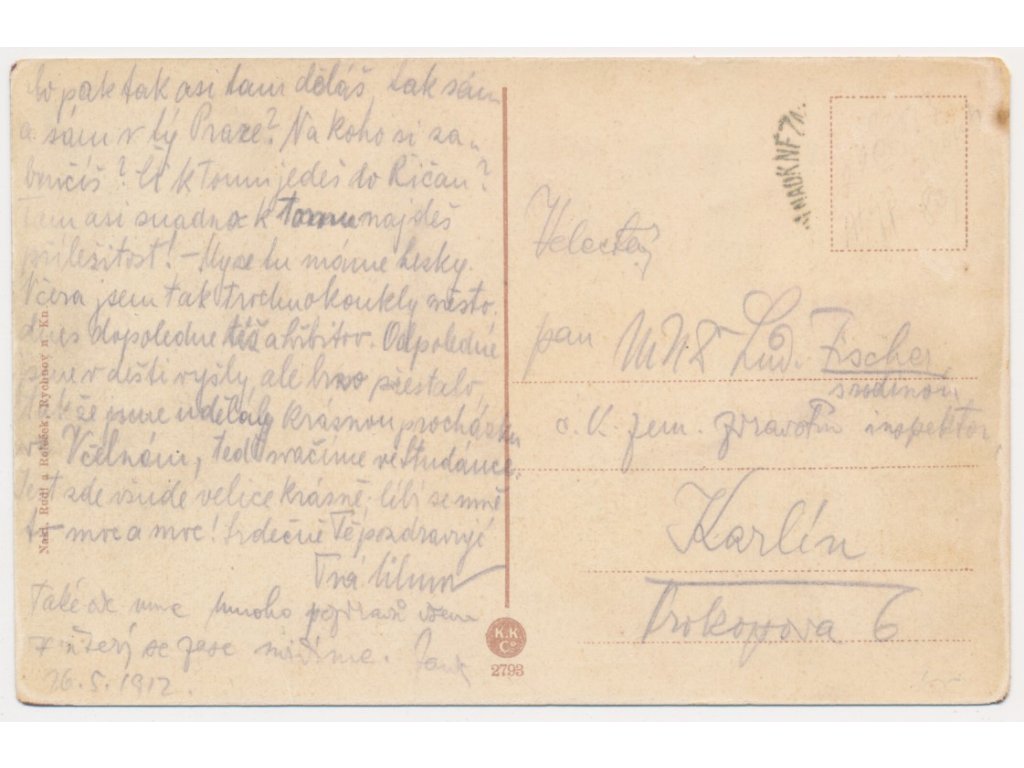 to pak tak asi tam děláš, tak sám
a sám v tý Praze? Na koho si za„
bručíš? Či k tomu jedeš do Říčan?
Tam asi snadno k tomu najdeš
příležitost! – My se tu máme hesky.
Včera jsem tak trochu okoukly město.
dnes dopoledne též a hřbitov. Odpoledne
jsme v dešti vyšly, ale brzo přestalo,
tak že jsme udělaly krásnou procházku
Včelnám, teď svačíme ve Studánce.
Jest zde všude velice krásně. líbí se mně
to moc a moc! Srdečně Tě pozdravuje
Tvá
Také ode mne mnoho pozdravů všem
se zase
26.5.1912.
Nakl. Rudl a Rychnov n. Kn.
K.K.
Co
2793
Velectěný
pan MUDr Lud. Fischer,
s rodinou
c. k. zem. zdravotní inspektor,
Karlín
Prokopova 6